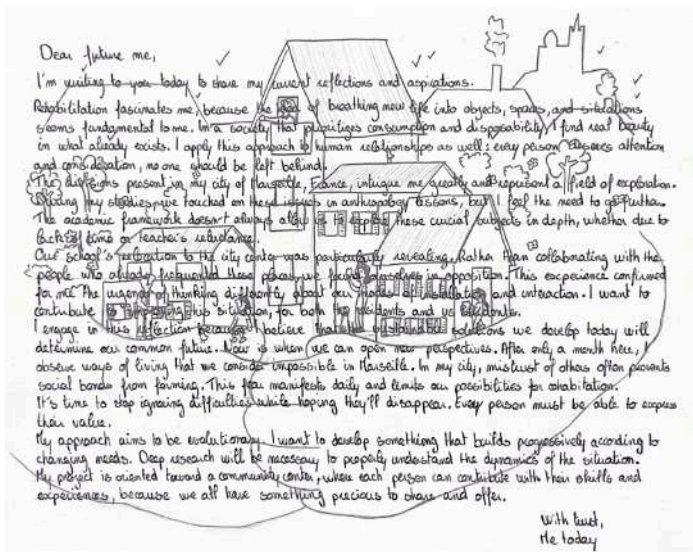 Dear future me,
I'm writing to you today to share my current reflections and aspirations.
Rehabilitation fascinates me, because the idea of breathing new life into objects, spaces, and situations
seems fundamental to me. In a society that prioritizes consumption and disposability, I find real beauty
in what already exists. I apply this approach to human relationships as well: every person deserves attention
and consideration, no one should be left behind.
The divisions present in my city of Marseille, France, intrigue me greatly and represent a field of exploration.
During my studies, we touched on these issues in anthropology lessons, but I feel the need to go further.
The academic framework doesn't always allow us to explore these crucial subjects in depth, whether due to
lack of time or teacher's reluctance.
Our school's relocation to the city center was particularly revealing. Rather than collaborating with the
people who already frequented these places, we found ourselves in opposition. This experience confirmed
for me the urgency of thinking differently about our modes of installation and interaction. I want to
contribute to improving this situation, for both the residents and us students.
I engage in this reflection because I believe that the sustainable solutions we develop today will
determine our common future. Now is when we can open new perspectives. After only a month here, I
observe ways of living that we consider impossible in Marseille. In my city, mistrust of others often prevents
social bonds from forming. This fear manifests daily and limits our possibilities for cohabitation.
It's time to stop ignoring difficulties while hoping they'll disappear. Every person must be able to express
their value.
My approach aims to be evolutionary. I want to develop something that builds progressively according to
changing needs. Deep research will be necessary to properly understand the dynamics of the situation.
My project is oriented toward a community center, where each person can contribute with their skills and
experiences, because we all have something precious to share and offer.
With trust,
Me today